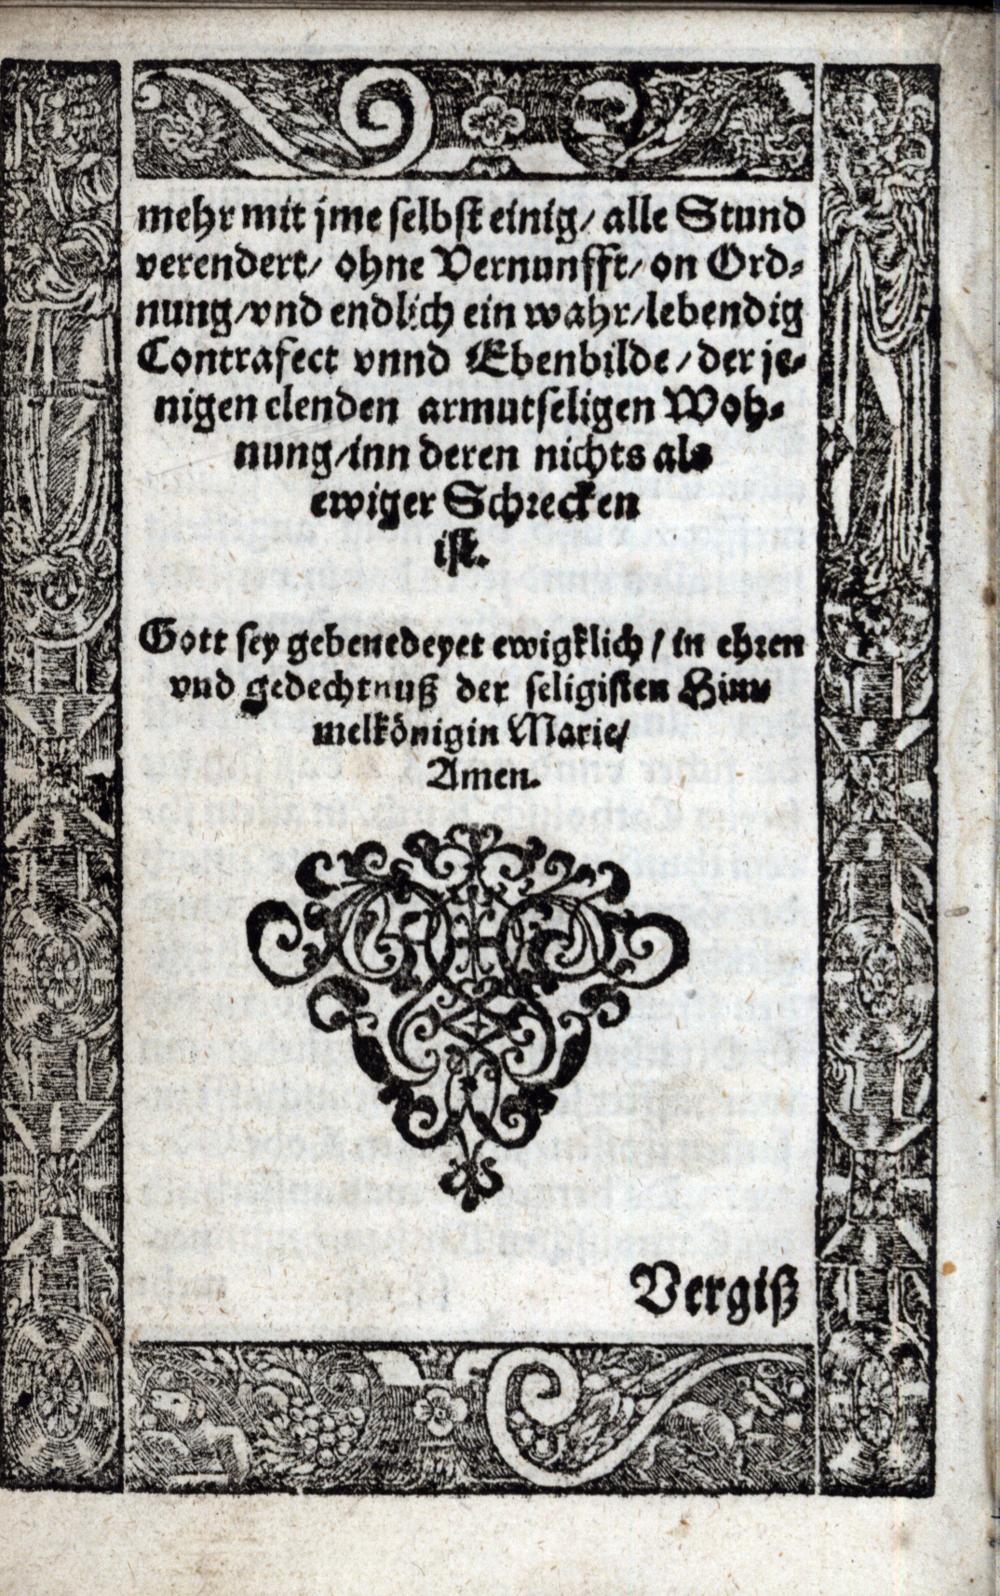 mehr mit jme selbst einig/ alle Stund
verendert/ ohne Vernunfft/ on Ord-
nung/ vnd endlich ein wahr/ lebendig
Contrafect vnnd Ebenbilde/ der je-
nigen elenden armutseligen Woh-
nung/ inn deren nichts als
ewiger Schrecken
ist.
Gott sey gebenedeyet ewigklich/ in ehren
vnd gedechtnuß der seligisten Him-
melkönigin Marie/
Amen.
Vergiß